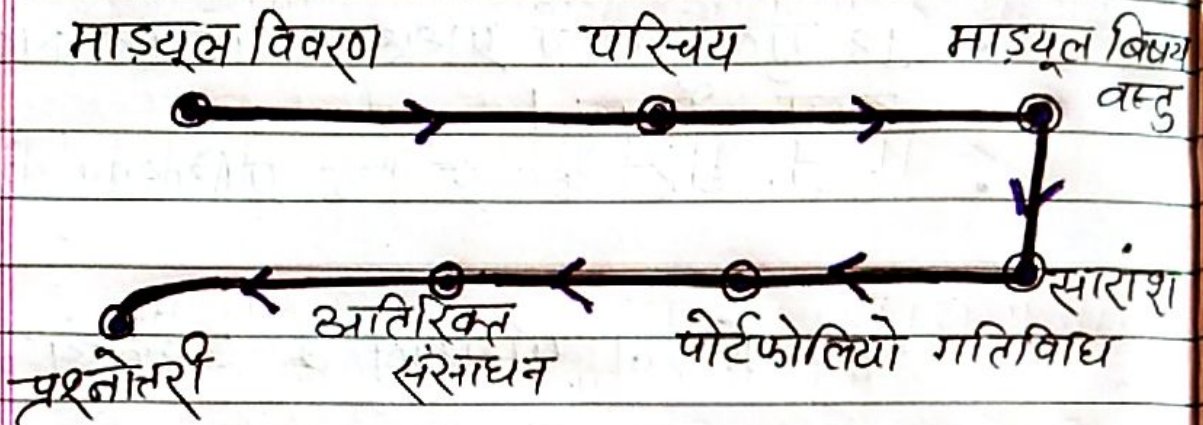 माड़यूल विवरण
परिचय
माड़यूल बिषय
वस्तु
सारांश
पोर्टफोलियो गतिविधि
अतिरिक्त
संसाधन
प्रश्नोत्तरी